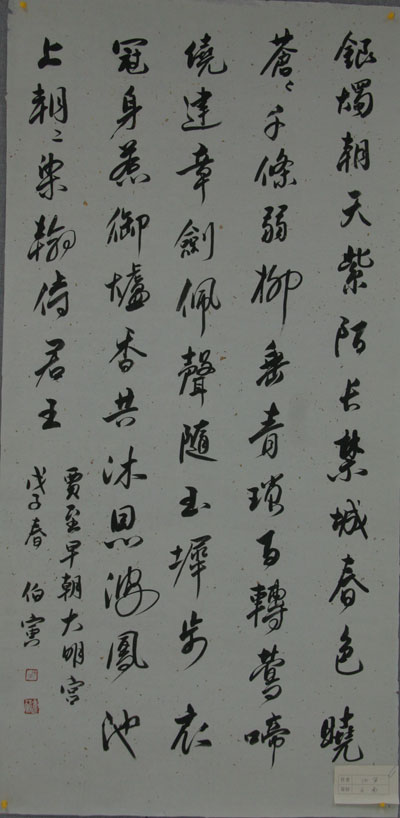 銀燭朝天紫陌长禁城春色曉
蒼〻千條弱柳垂青瑣百轉鶯啼
繞建章劍佩聲随玉墀步衣
冠身惹御爐香共沐恩波鳳池
上朝〻染翰侍君王
賈至早朝大明宮
戊子春 伯寅